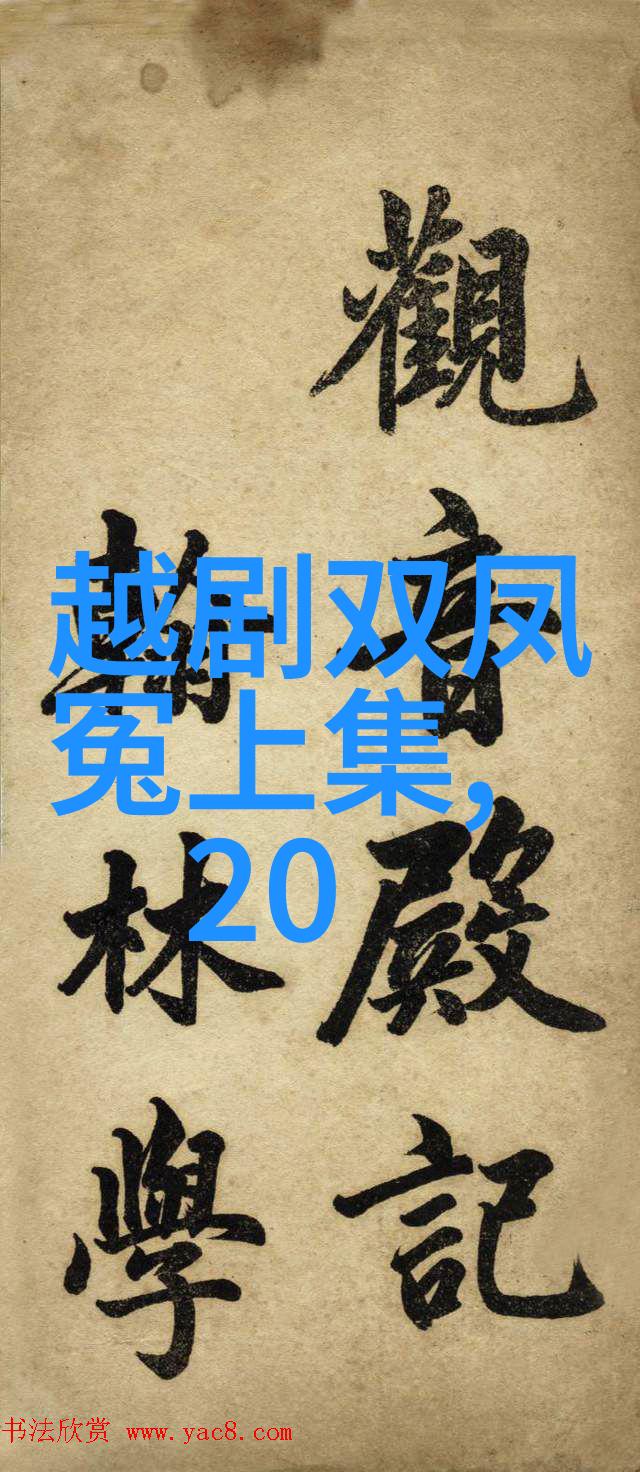 觀音殿記
翰林學
越剧双凤
冤上集,
20
书法欣赏 www.yac8.com